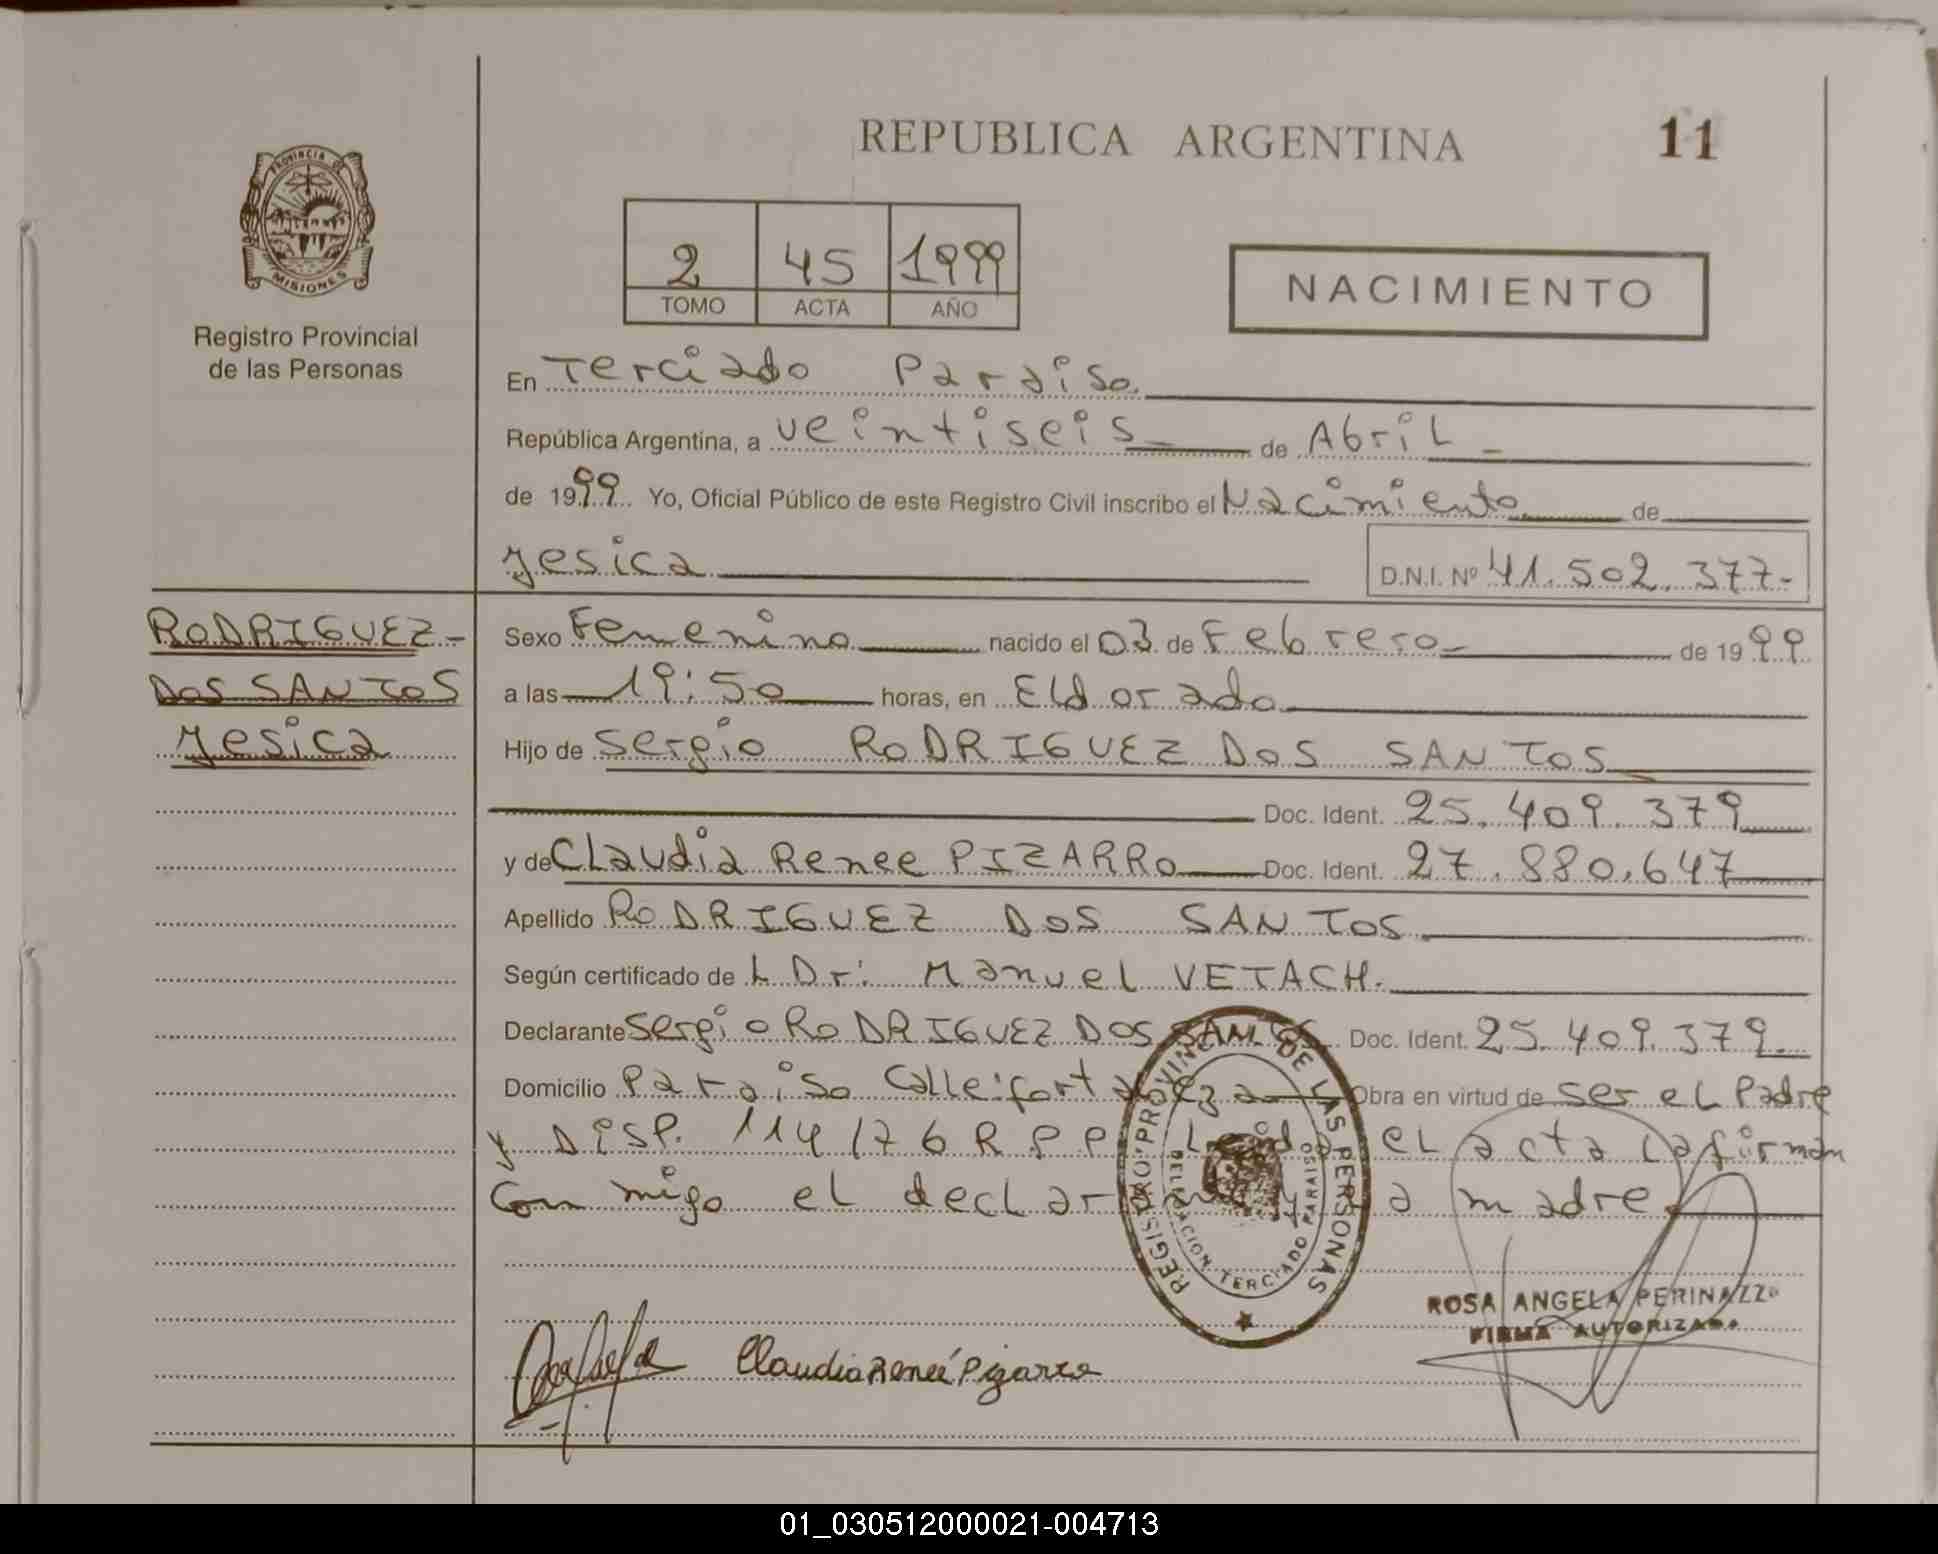 REPUBLICA ARGENTINA
11
PROVINCIA DE
MISIONES
Registro Provincial
de las Personas
2 45 1999
TOMO ACTA AÑO
NACIMIENTO
En Terciado Paraiso.
República Argentina, a veintiseis de Abril
de 1999. Yo, Oficial Público de este Registro Civil inscribo el Nacimiento de
Yesica D.N.I. Nº 41.502.377-
RODRIGUEZ-
DOS SANTOS
Yesica
Sexo Femenino nacido el 03 de Febrero de 1999
a las 19:50 horas, en Eldorado
Hijo de Sergio RODRIGUEZ DOS SANTOS
Doc. Ident. 25.409.379
y de Claudia Renee PIZARRO Doc. Ident. 27.880.647
Apellido RODRIGUEZ DOS SANTOS
Según certificado de L Dr: Manuel VETACH.
Declarante Sergio RODRIGUEZ DOS SANTOS Doc. Ident. 25.409.379.
Domicilio Paraiso Calle: fortaleza Obra en virtud de ser el Padre
y DISP. 114/76 R P P Leida el acta la firman
Con migo el declarante y la madre
REGISTRO PROVINCIAL DE LAS PERSONAS
DELEGACION TERCIADO PARAISO
ROSA ANGELA PERINAZZO
FIRMA AUTORIZADA
Claudia Reneé Pizarro
01_030512000021-004713